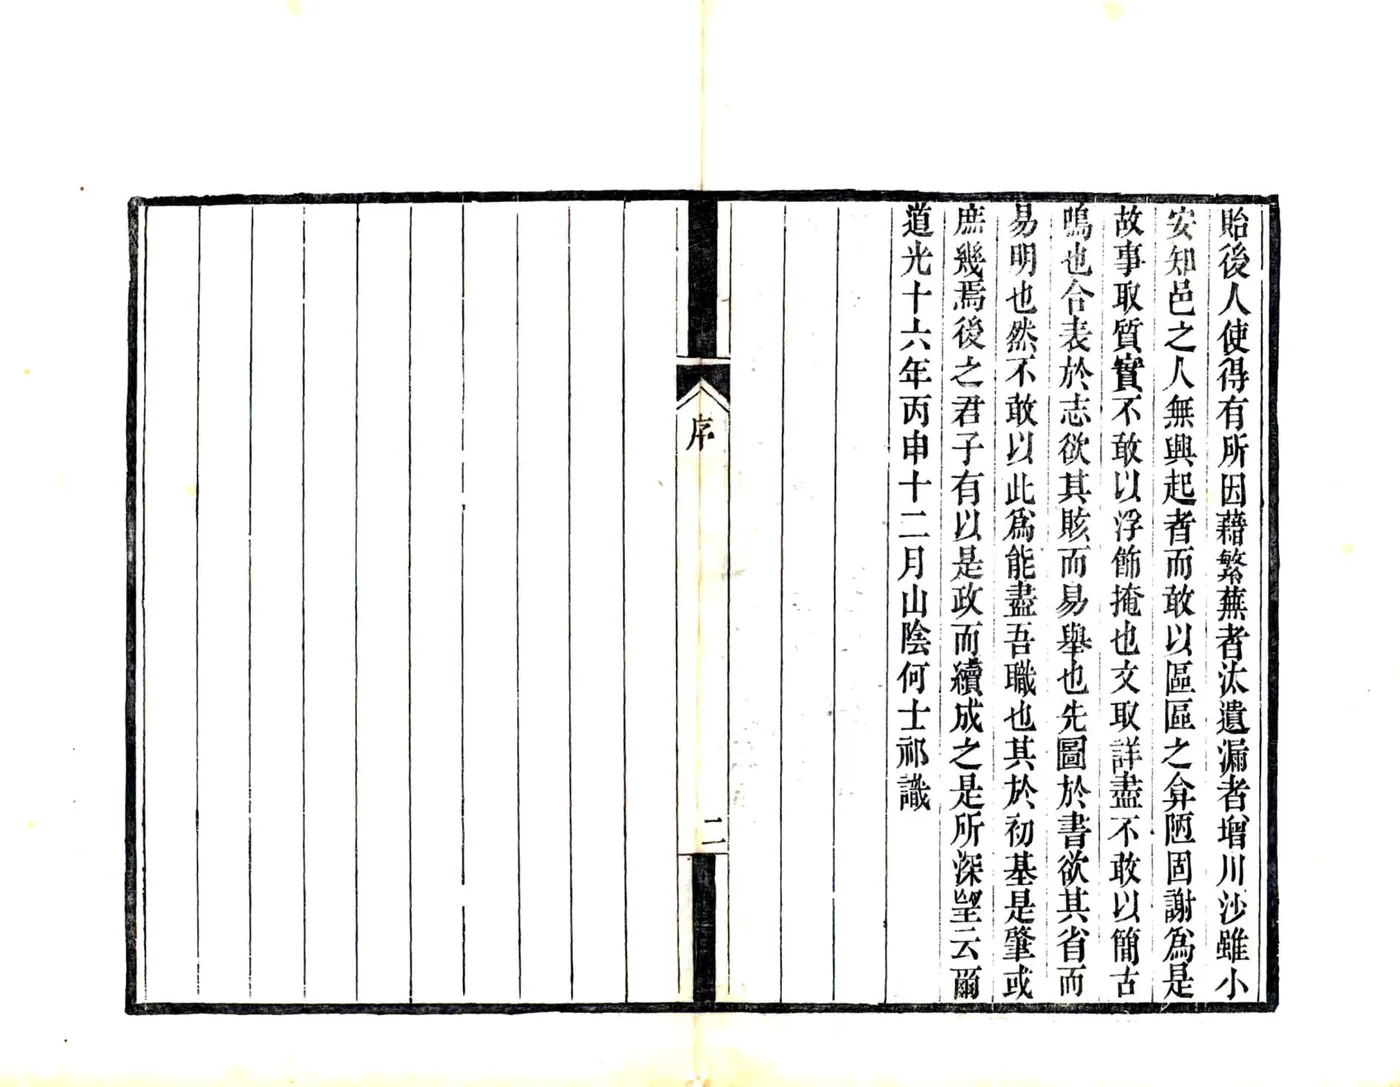 貽後人使得有所因藉繁蕪者汰遺漏者增川沙雖小
安知邑之人無興起者而敢以區區之弇陋固謝爲是
故事取質實不敢以浮飾掩也文取詳盡不敢以簡古
鳴也合表於志欲其賅而易舉也先圖於書欲其省而
易明也然不敢以此爲能盡吾職也其於初基是肇或
庶幾焉後之君子有以是政而續成之是所深望云爾
道光十六年丙申十二月山陰何士祁識
序
二